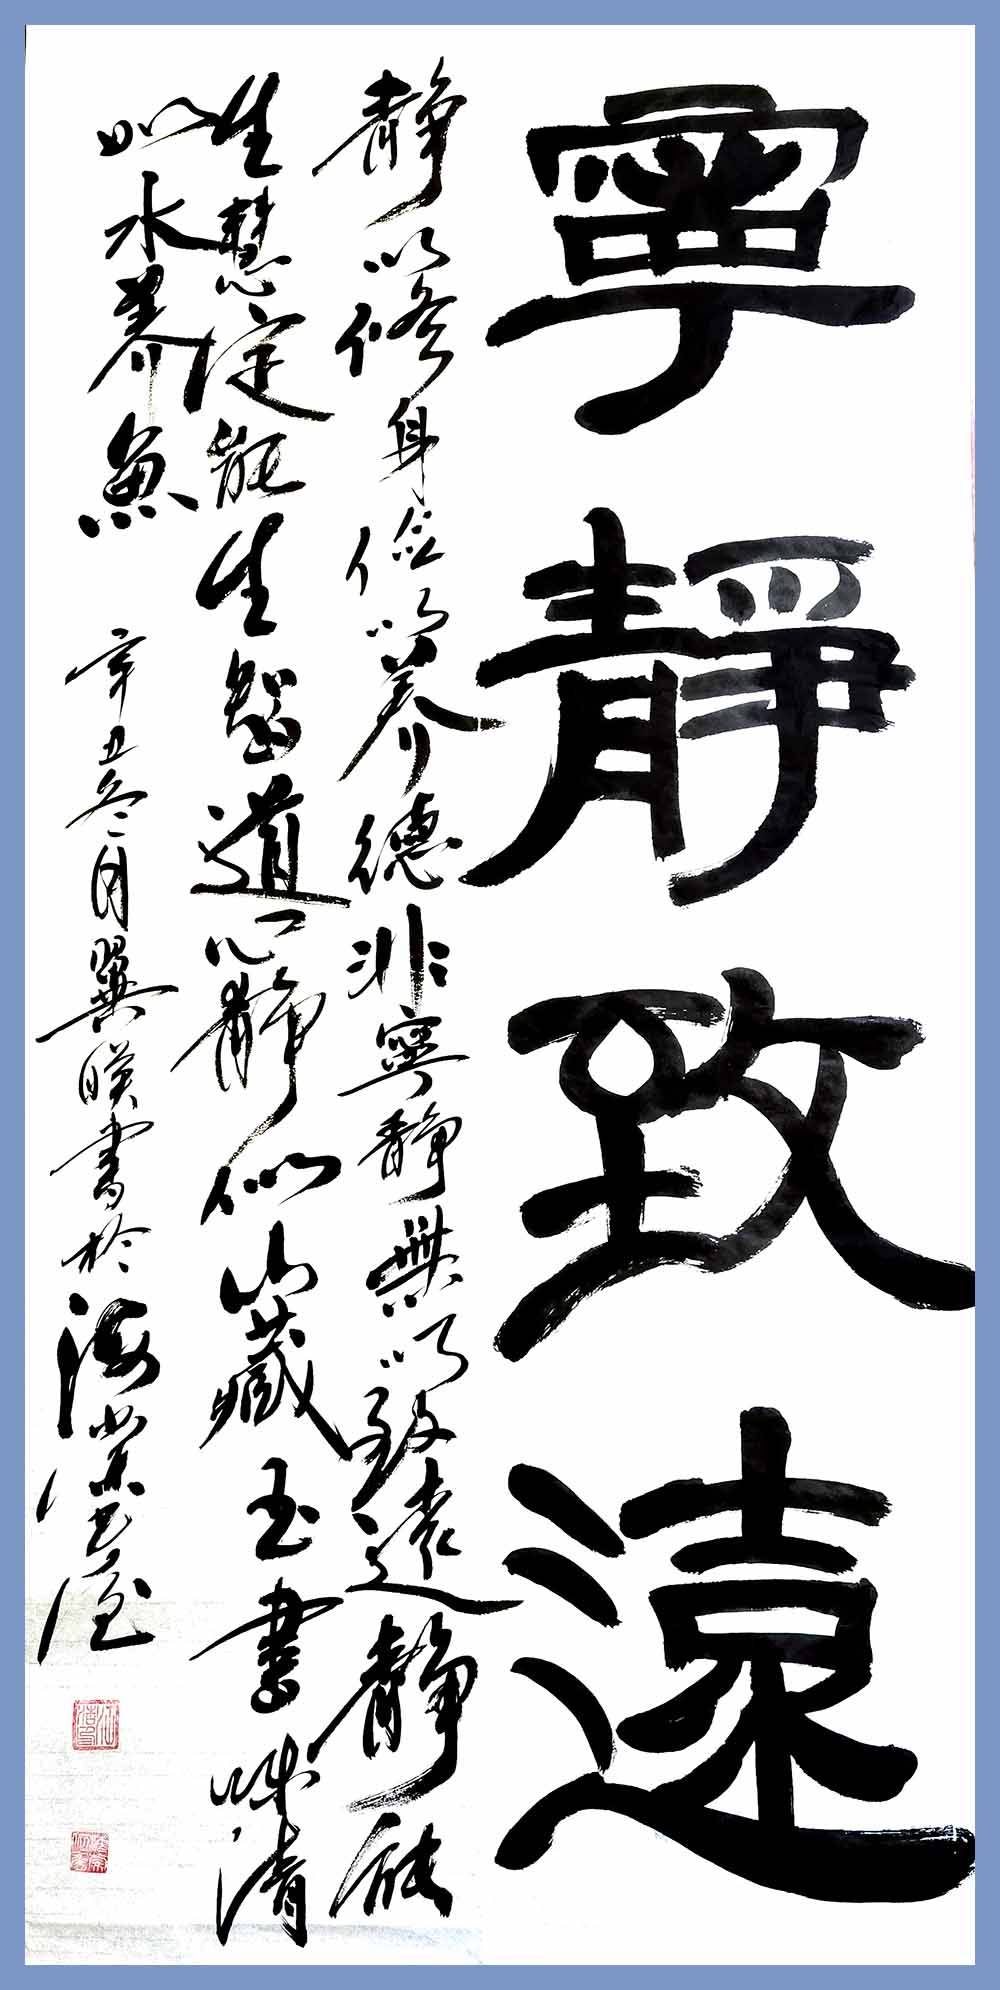 寧靜致遠
靜以修身儉以養德非寧靜無以致遠靜能
生慧定能生智道心靜似山藏玉書味清
如水養魚
辛丑冬月翼暎書於海棠書屋